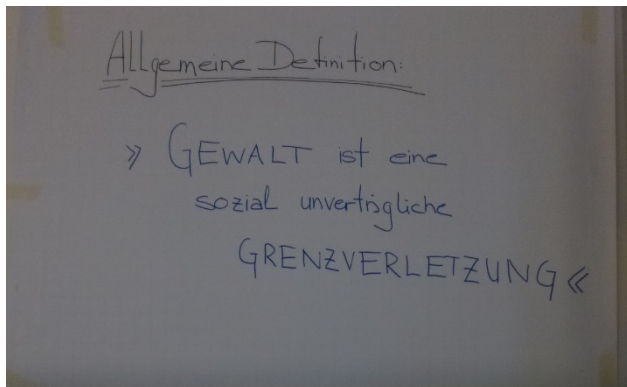 Allgemeine Definition:
» GEWALT ist eine
sozial unverträgliche
GRENZVERLETZUNG «